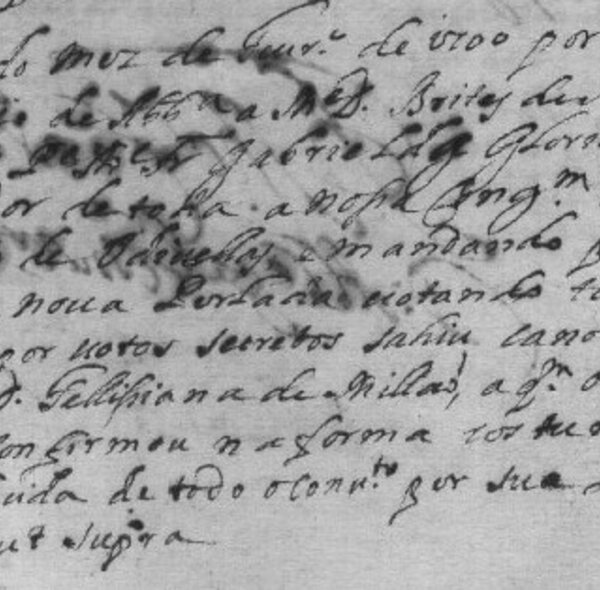 do mez de Feur.º de 1700 por
de Abb.ª a M.e D. Brites de
P.e Fr Gabriel da Gloria
or de toda a nosa Cong.m
de Odiuellas, e mandando
noua Prelada, e uotando
por uotos secretos sahiu cano
D. Fellisiana de Millão, a q.m o
confirmou na forma costu
uida de todo o conu.to por sua
ut supra